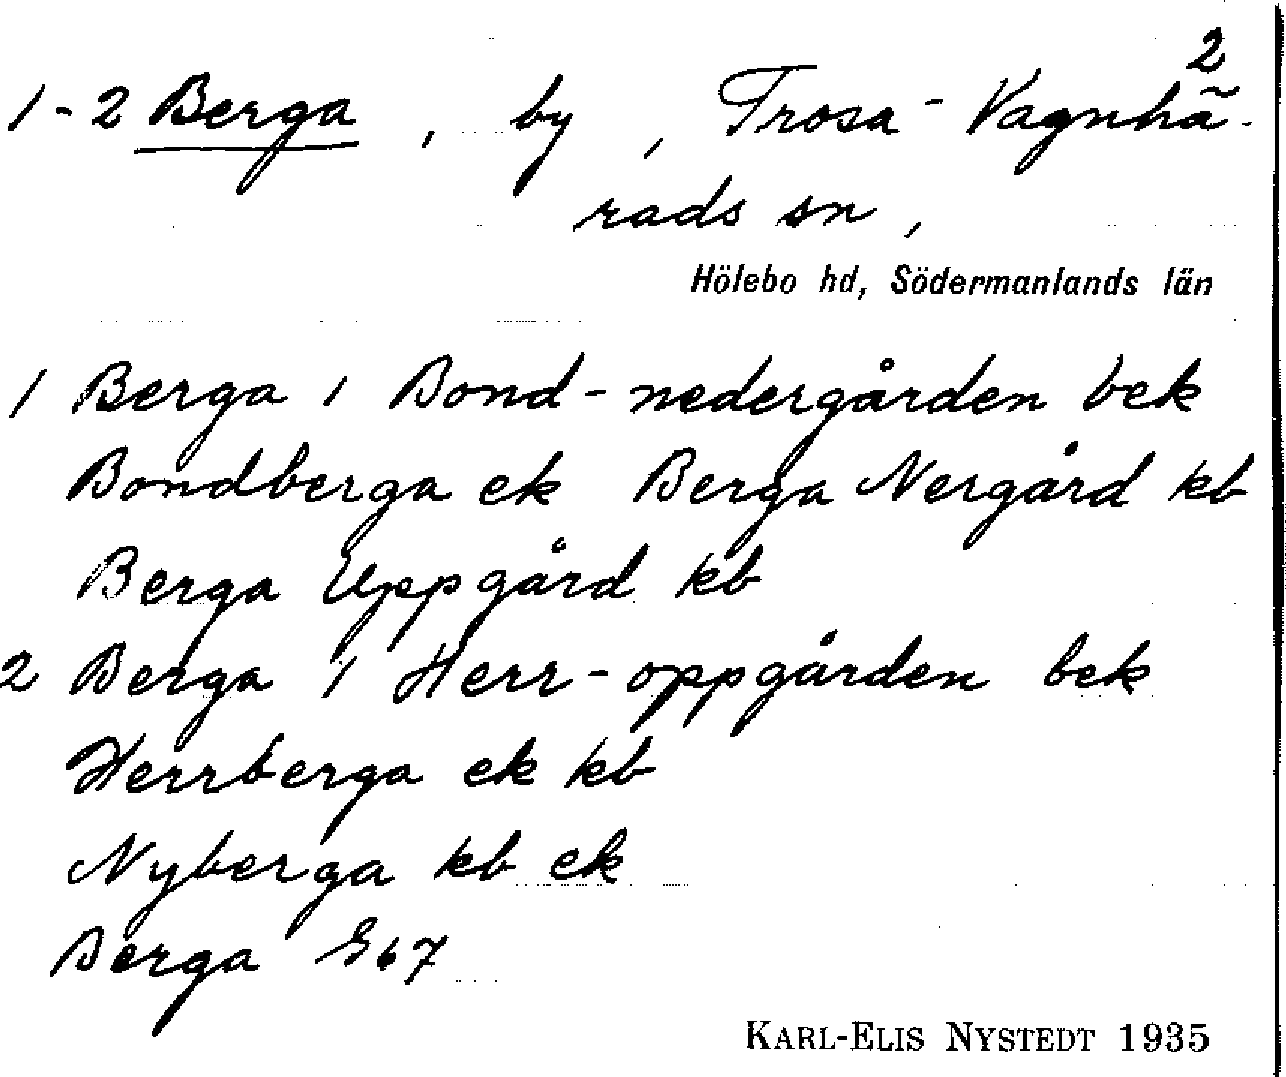 2
1-2 Berga, by, Trosa-Vagnhä-
rads sn,
Hölebo hd, Södermanlands län
1 Berga 1 Bond-nedergården bek
Bondberga ek Berga Nergård kb
Berga Uppgård kb
2 Berga 1 Herr-oppgården bek
Herrberga ek kb
Nyberga kb ek
Berga G67
KARL-ELIS NYSTEDT 1935